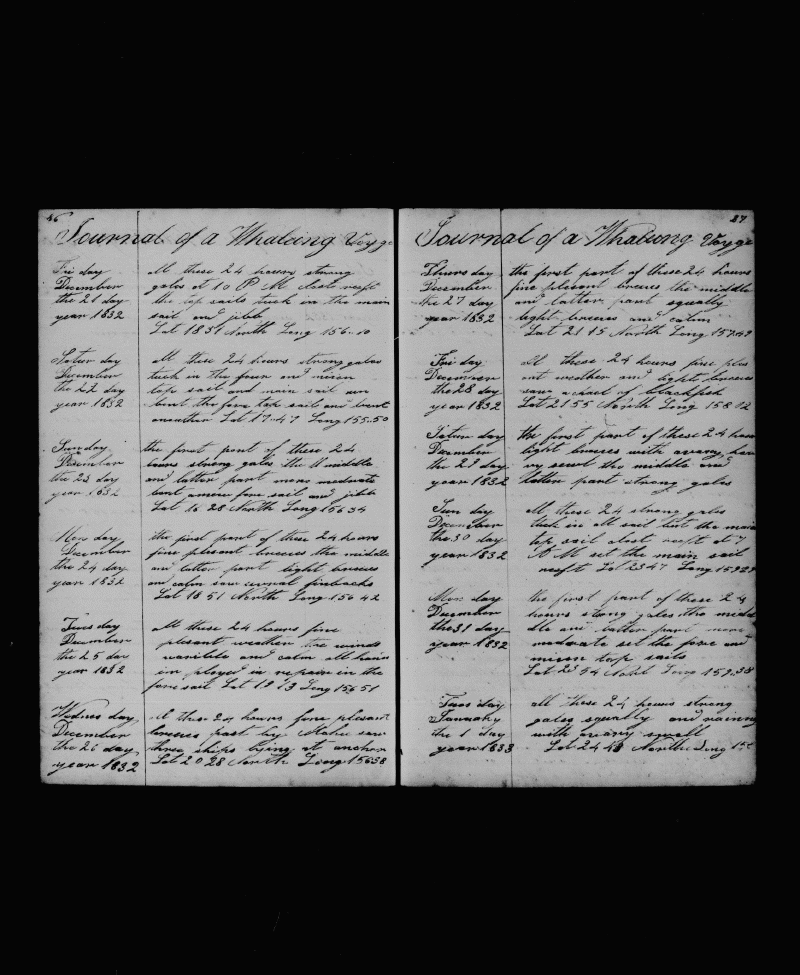 46
Journal of a Whaleing Voyge
Fri day
December
the 21 day
year 1832
all these 24 hours strong
gales at 10 P M close reeft
the top sails tuck in the main
sail and jibb
Lat 18 51 North Long 156-10
Satur day
December
the 22 day
year 1832
all these 24 hours strong gales
tuck in the four and misen
top sail and main sail un
bent the fore top sail and bent
aneuther Lat 17-47 Long 155-50
Sunday
December
the 23 day
year 1832
the first peart of these 24
hours strong gales the middle
and latter part more moderate
bent a new fore sail and jibb
Lat 16 28 North Long 156 34
Mon day
December
the 24 day
year 1832
the first part of these 24 hours
fine plesent breeses the middle
and latter part light breeses
and calm saw finbacks
Lat 18 51 North Long 156 42
Tues day
December
the 25 day
year 1832
all these 24 hours fine
plesent weather the winds
varible and calm all hands
im ployed in repairin the
fore sail Lat 19 13 Long 156 51
Wednes day
December
the 26 day
year 1832
all these 24 hours fine plesant
breeses past by saw
three ships lying at anchor
Lat 20 28 North Long 156 58
27
Journal of a Whaleing Voyge
Thurs day
December
the 27 day
year 1832
the first part of these 24 hours
fine plesent breeses the middle
and latter part equally
light breeses and calm
Lat 21 15 North Long 157 49
Fri day
December
the 28 day
year 1832
all these 24 hours fine ples
ent weather and light breeses
saw a of blackfish
Lat 21 55 North Long 158 12
Satur day
December
the 29 day
year 1832
the first part of these 24 hours
light breeses with a vary heav
vy swell the middle and
latter part strong gales
Sun day
December
the 30 day
year 1832
all these 24 strong gales
tuck in all sail but the main
top sail close reeft at 7
A M set the main sail
reeft Lat 23 47 Long 159 29
Mon day
December
the 31 day
year 1832
the first part of these 24
hours strong gales the midd
dle and latter part more
moderate set the fore and
misen top sails
Lat 23 54 Noth Long 159 38
Tues day
Januahy
the 1 day
year 1833
all these 24 hours strong
gales squally and raining
with a vary swell
Lat 24 41 North Long